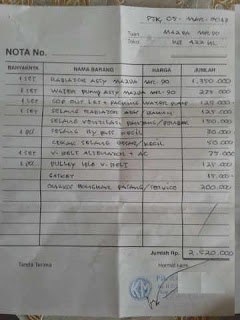 PTK, 05 - MAR - 2017
Tuan MAZDA MR-90
Toko KB 424 HL
NOTA No.
BANYAKNYA NAMA BARANG HARGA JUMLAH
1 SET RADIATOR ASSY MAZDA MR-90 1.350.000
1 SET WATER PUMP ASSY MAZDA MR-90 275.000
1 SET TOP OUT LET + PACKING WATER PUMP 125.000
1 SET SELANG RADIATOR ATAS / BAWAH 125.000
SELANG VENTILASI PANJANG / PENDEK 150.000
1 PC SELANG BY PASS KECIL 30.000
SEKAT SELANG BESAR / KECIL 50.000
1 SET V-BELT ALTERNATOR + AC 75.000
1 PC PULLEY V-BELT 125.000
GASKET 15.000
ONGKOS BONGKAR PASANG / SERVICE 200.000
Jumlah Rp. 2.520.000
Tanda Terima Hormat kami,